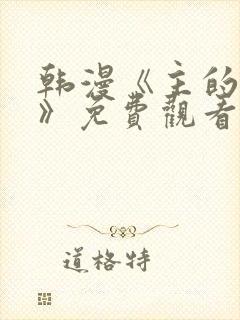 韩漫《主的
》免費觀看
道格特